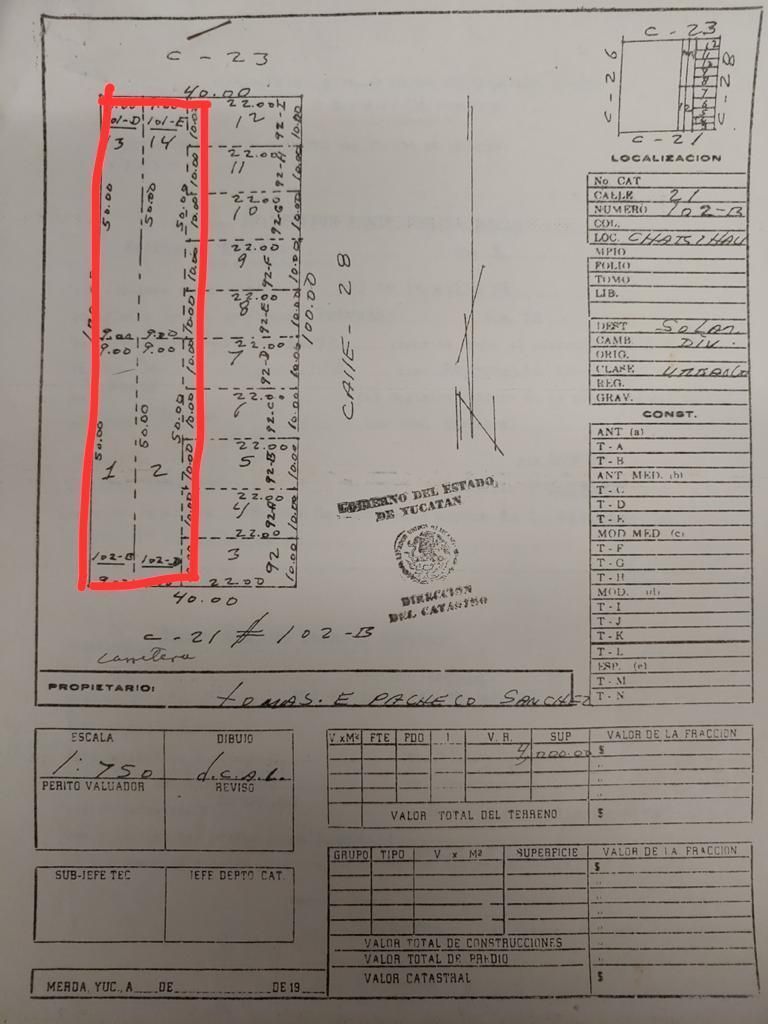 C - 23
40.00
C - 23
C - 26
C - 28
C - 21
LOCALIZACION
101-D 101-E
13 14
50.00 50.00 50.00
9.00 9.00
9.00 9.00
50.00 50.00 50.00
1 2
102-B 102-D
22.00
12 92-I 10.00
22.00
11 92-H 10.00
22.00
10 92-G 10.00
22.00
9 92-F 10.00
22.00
8 92-E 10.00
22.00
7 92-D 10.00
22.00
6 92-C 10.00
22.00
5 92-B 10.00
22.00
4 92-A 10.00
22.00
3 92 10.00
22.00
100.00
CALLE - 28
N
40.00
C - 21 # 102 - B
carretera
GOBIERNO DEL ESTADO
DE YUCATAN
DIRECCION
DEL CATASTRO
No CAT
CALLE 21
NUMERO 102-B
COL.
LOC.
MPIO
FOLIO
TOMO
LIB.
DEST SOLAR
CAMB. DIV.
ORIG.
CLASE URBANO
REG.
GRAV.
CONST.
ANT (a)
T - A
T - B
ANT MED. (b)
T - C
T - D
T - E
MOD MED (c)
T - F
T - G
T - H
MOD. (d)
T - I
T - J
T - K
T - L
ESP. (e)
T - M
T - N
PROPIETARIO: TOMAS. E. PACHECO SANCHEZ
ESCALA DIBUJO
1:750 d.c.a.l.
PERITO VALUADOR REVISO
SUB-JEFE TEC JEFE DEPTO CAT.
V x M² FTE FDO 1 V. R. SUP VALOR DE LA FRACCION
4,000.00 $
VALOR TOTAL DEL TERRENO $
GRUPO TIPO V x M² SUPERFICIE VALOR DE LA FRACCION
$
VALOR TOTAL DE CONSTRUCCIONES
VALOR TOTAL DE PREDIO
VALOR CATASTRAL $
MERDA, YUC., A DE DE 19